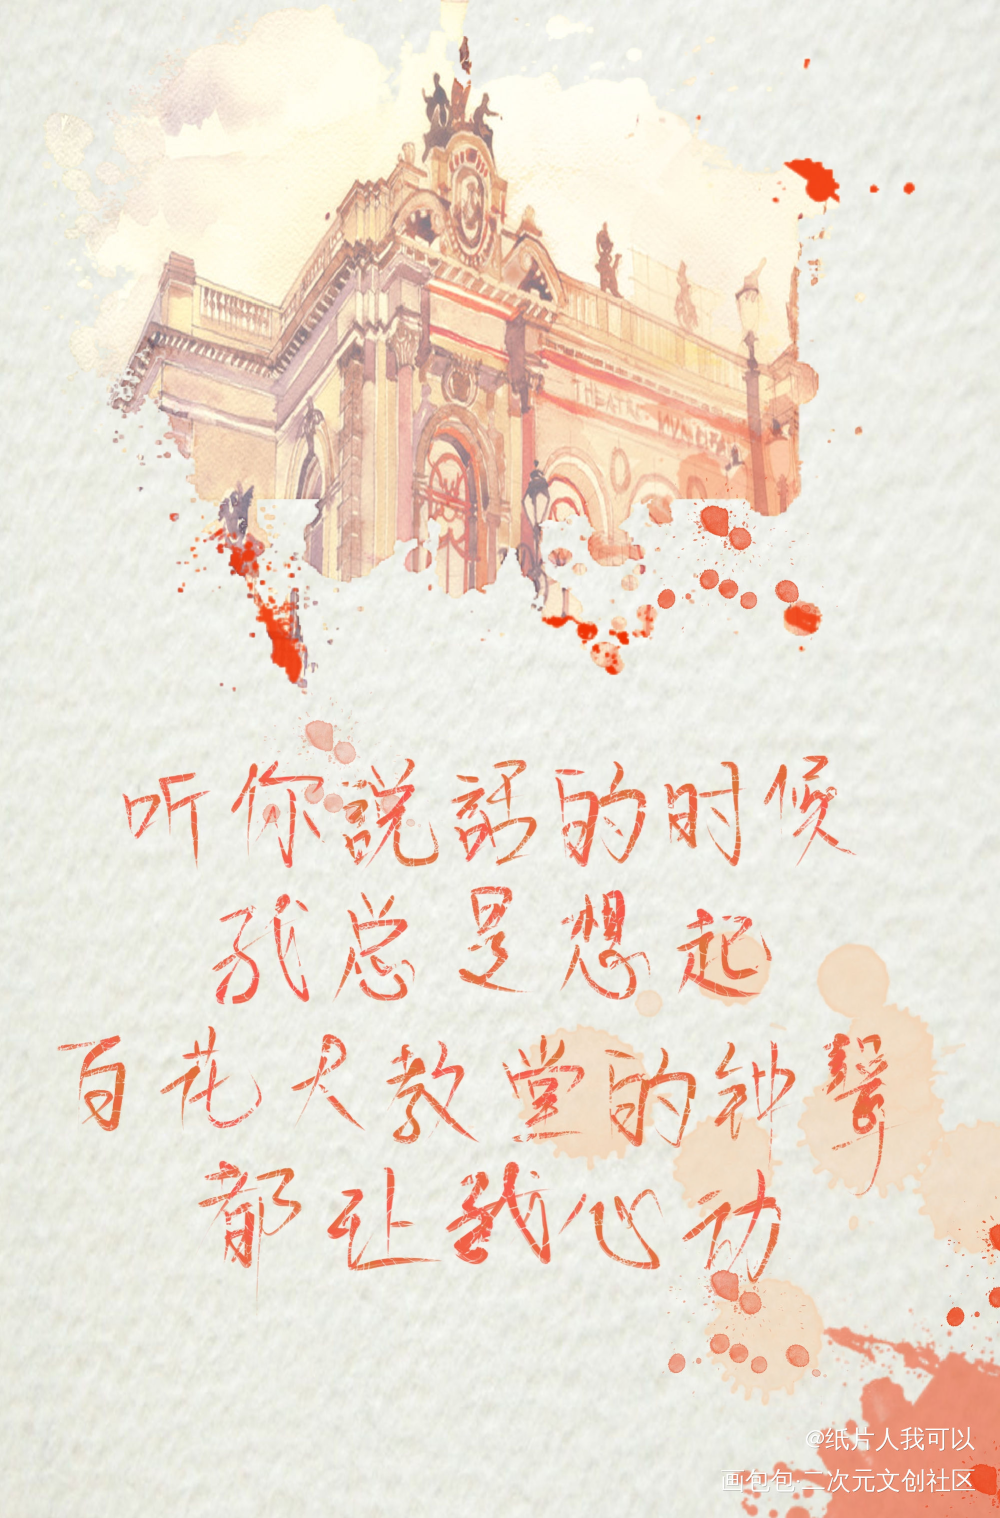 听你説話的时候
我总是想起
百花大教堂的钟聲
都让我心动
@纸片人我可以
画包包·二次元文创社区